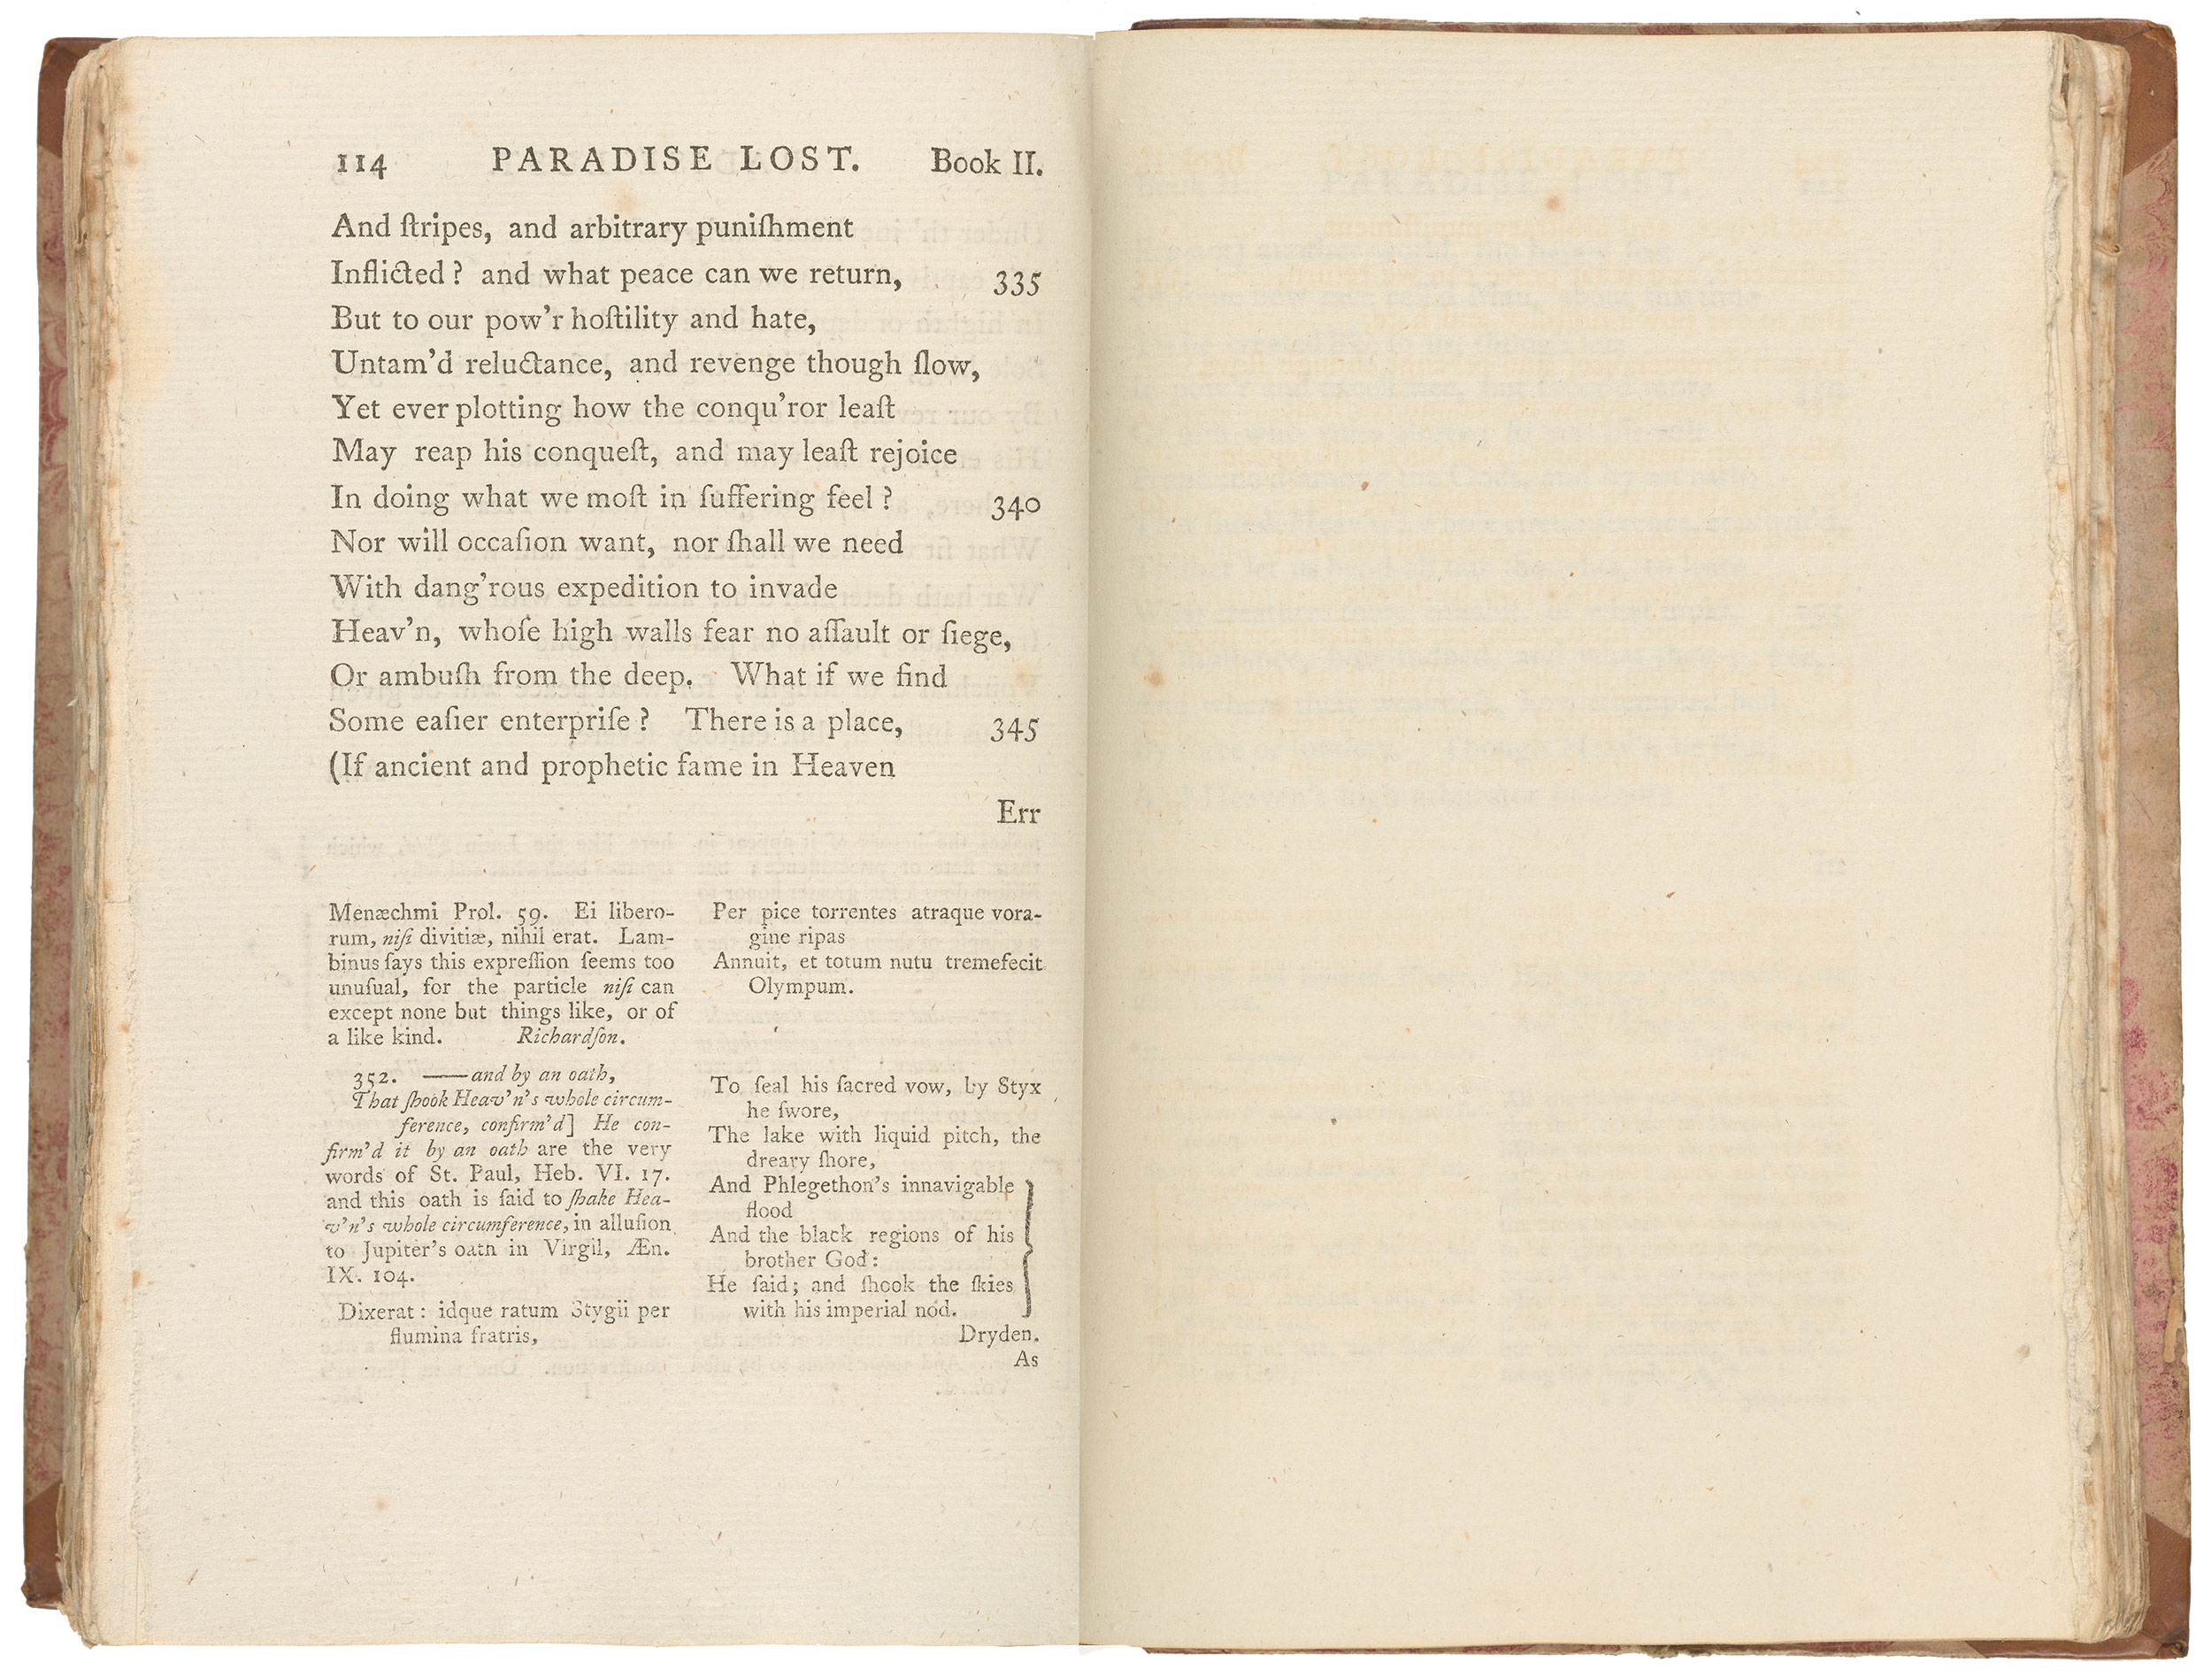 114 PARADISE LOST. Book II.
And ſtripes, and arbitrary puniſhment
Inflicted? and what peace can we return, 335
But to our pow'r hoſtility and hate,
Untam'd reluctance, and revenge though ſlow,
Yet ever plotting how the conqu'ror leaſt
May reap his conqueſt, and may leaſt rejoice
In doing what we moſt in ſuffering feel? 340
Nor will occaſion want, nor ſhall we need
With dang'rous expedition to invade
Heav'n, whoſe high walls fear no aſſault or ſiege,
Or ambuſh from the deep. What if we find
Some eaſier enterpriſe? There is a place, 345
(If ancient and prophetic fame in Heaven
Err
Menæchmi Prol. 59. Ei libero-
rum, niſi divitiæ, nihil erat. Lam-
binus ſays this expreſſion ſeems too
unuſual, for the particle niſi can
except none but things like, or of
a like kind. Richardſon.
352. —— and by an oath,
That ſhook Heav'n's whole circum-
ference, confirm'd] He con-
firm'd it by an oath are the very
words of St. Paul, Heb. VI. 17.
and this oath is ſaid to ſhake Hea-
v'n's whole circumference, in alluſion
to Jupiter's oath in Virgil, Æn.
IX. 104.
Dixerat: idque ratum Stygii per
flumina fratris,
Per pice torrentes atraque vora-
gine ripas
Annuit, et totum nutu tremefecit
Olympum.
To ſeal his ſacred vow, by Styx
he ſwore,
The lake with liquid pitch, the
dreary ſhore,
And Phlegethon's innavigable
flood
And the black regions of his
brother God:
He ſaid; and ſhook the ſkies
with his imperial nod.
Dryden.
As